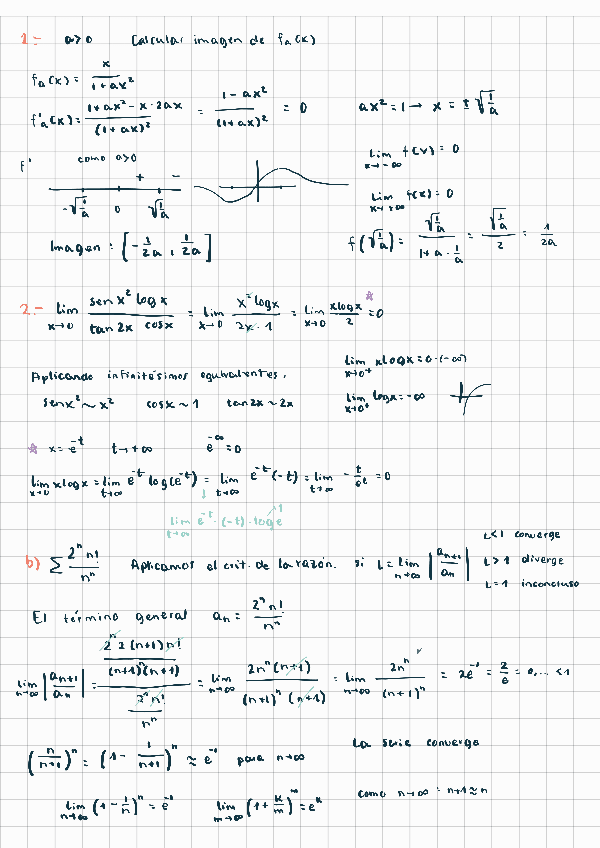 1.- a>0 Calcular imagen de fₐ(x)
fₐ(x) = x / (1+ax²)
f'ₐ(x) = (1+ax² - x·2ax) / (1+ax)² = (1-ax²) / (1+ax)² = 0 ax² = 1 → x = ±√(1/a)
f' como a>0 lim x→-∞ f(x) = 0
+ -
-√(1/a) 0 √(1/a) lim x→+∞ f(x) = 0
Imagen: [-1/2a , 1/2a] f(√(1/a)) = √(1/a) / (1+a·1/a) = √(1/a) / 2 = 1/2a
2.- lim x→0 (sen x² log x) / (tan 2x cos x) = lim x→0 (x² log x) / (2x·1) = lim x→0 (x log x) / 2 * = 0
lim x→0⁺ x log x = 0·(-∞)
Aplicando infinitésimos equivalentes.
senx² ~ x² cosx ~ 1 tan2x ~ 2x lim x→0⁺ log x = -∞
* x = e^-t t→+∞ e^-∞ = 0
lim x→0 x log x = lim t→∞ e^-t log(e^-t) = lim t→∞ e^-t (-t) = lim t→∞ - t/e^t = 0
↓ lim t→∞ e^-t · (-t) · log e 1
L<1 converge
b) Σ 2ⁿ n! / nⁿ Aplicamos el crit. de la razón. si L = lim n→∞ |aₙ₊₁ / aₙ| L>1 diverge
L=1 inconcluso
El término general aₙ = 2ⁿ n! / nⁿ
lim n→∞ |aₙ₊₁ / aₙ| = (2ⁿ 2 (n+1) n! / (n+1)ⁿ (n+1)) / (2ⁿ n! / nⁿ) = lim n→∞ 2nⁿ (n+1) / (n+1)ⁿ (n+1) = lim n→∞ 2nⁿ / (n+1)ⁿ = 2e⁻¹ = 2/e = 0,... <1
(n / n+1)ⁿ = (1 - 1/(n+1))ⁿ ≈ e⁻¹ para n→∞ La serie converge
lim n→∞ (1 - 1/n)ⁿ = e⁻¹ lim m→∞ (1 + k/m)^m = e^k como n→∞ = n+1 ≈ n